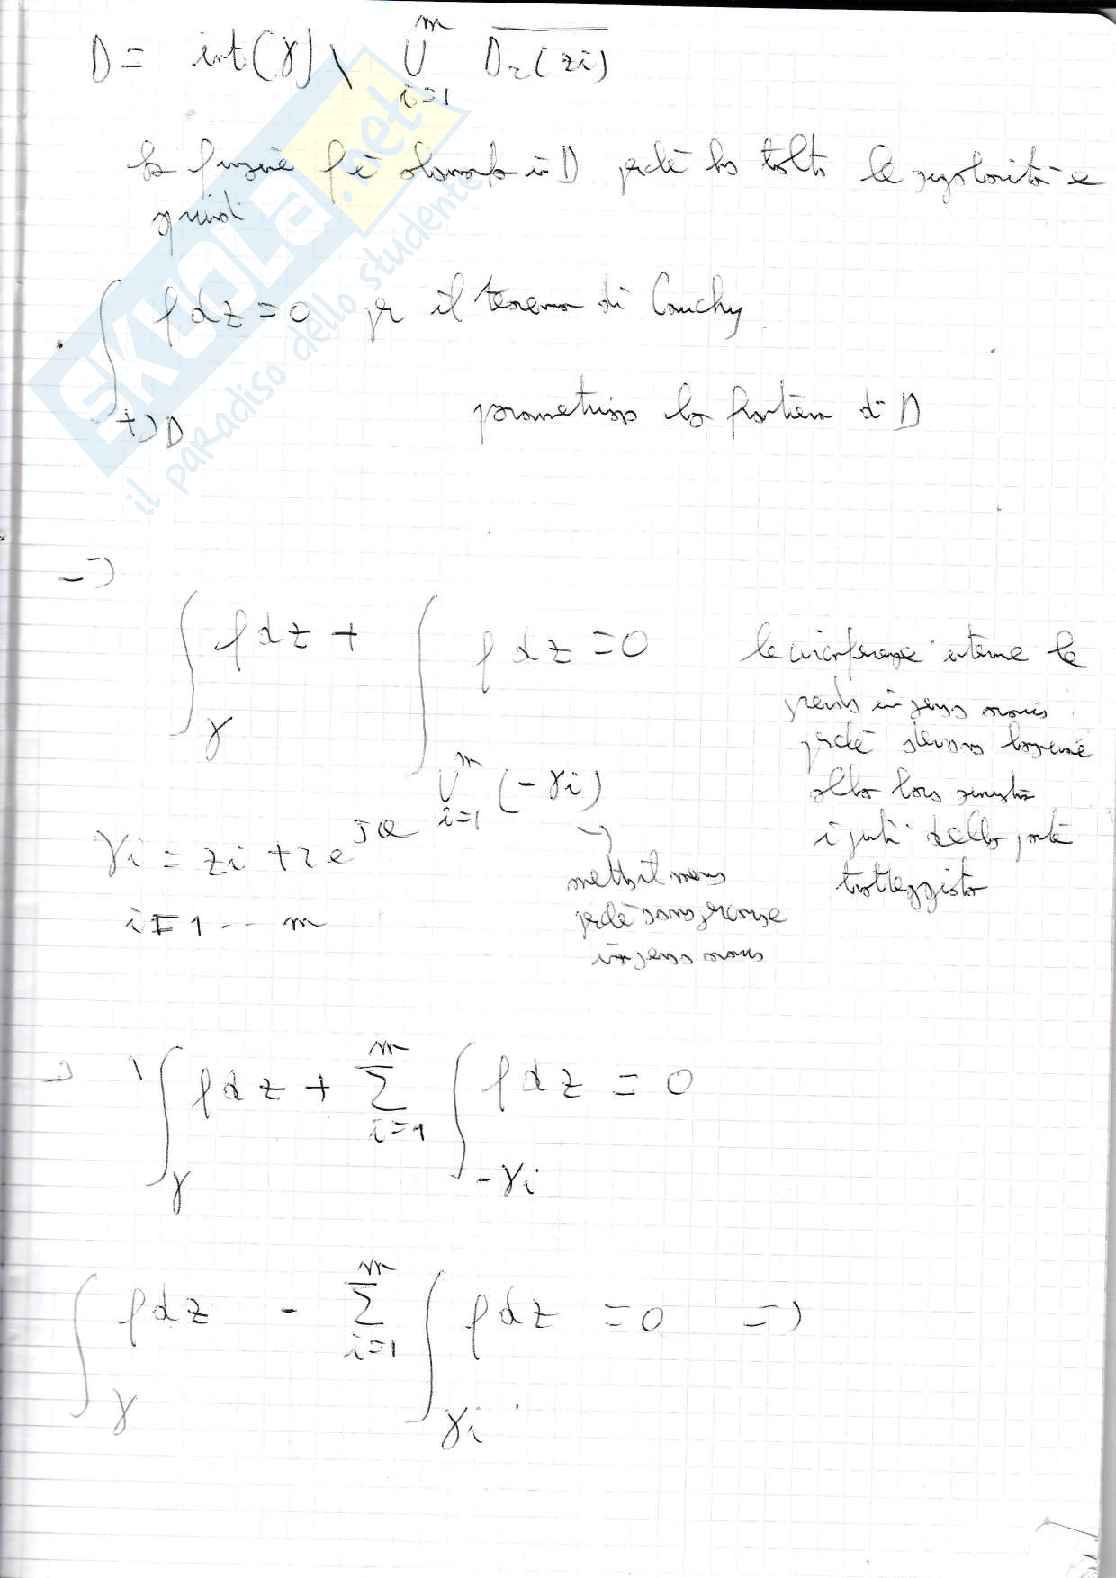 D = int(γ) \ ⋃_{i=1}^{m} \overline{D_r(zi)}
la funzione f è olomorfa in D perché ho tolto le singolarità e
quindi
∫_{+∂D} f dz = 0 per il teorema di Cauchy
parametrizzo la frontiera di D
=> ∫_γ f dz + ∫_{⋃_{i=1}^{m} (-γi)} f dz = 0
le circonferenze interne le
prendo in senso orario
perché devono lasciare
alla loro sinistra
i punti della parte
tratteggiata
γi = zi + r e^{jθ}
i = 1 ... m
metto il meno
perché sono percorse
in senso orario
=> ∫_γ f dz + ∑_{i=1}^{m} ∫_{-γi} f dz = 0
∫_γ f dz - ∑_{i=1}^{m} ∫_{γi} f dz = 0 =>
SKUOLA.net
il paradiso dello studente